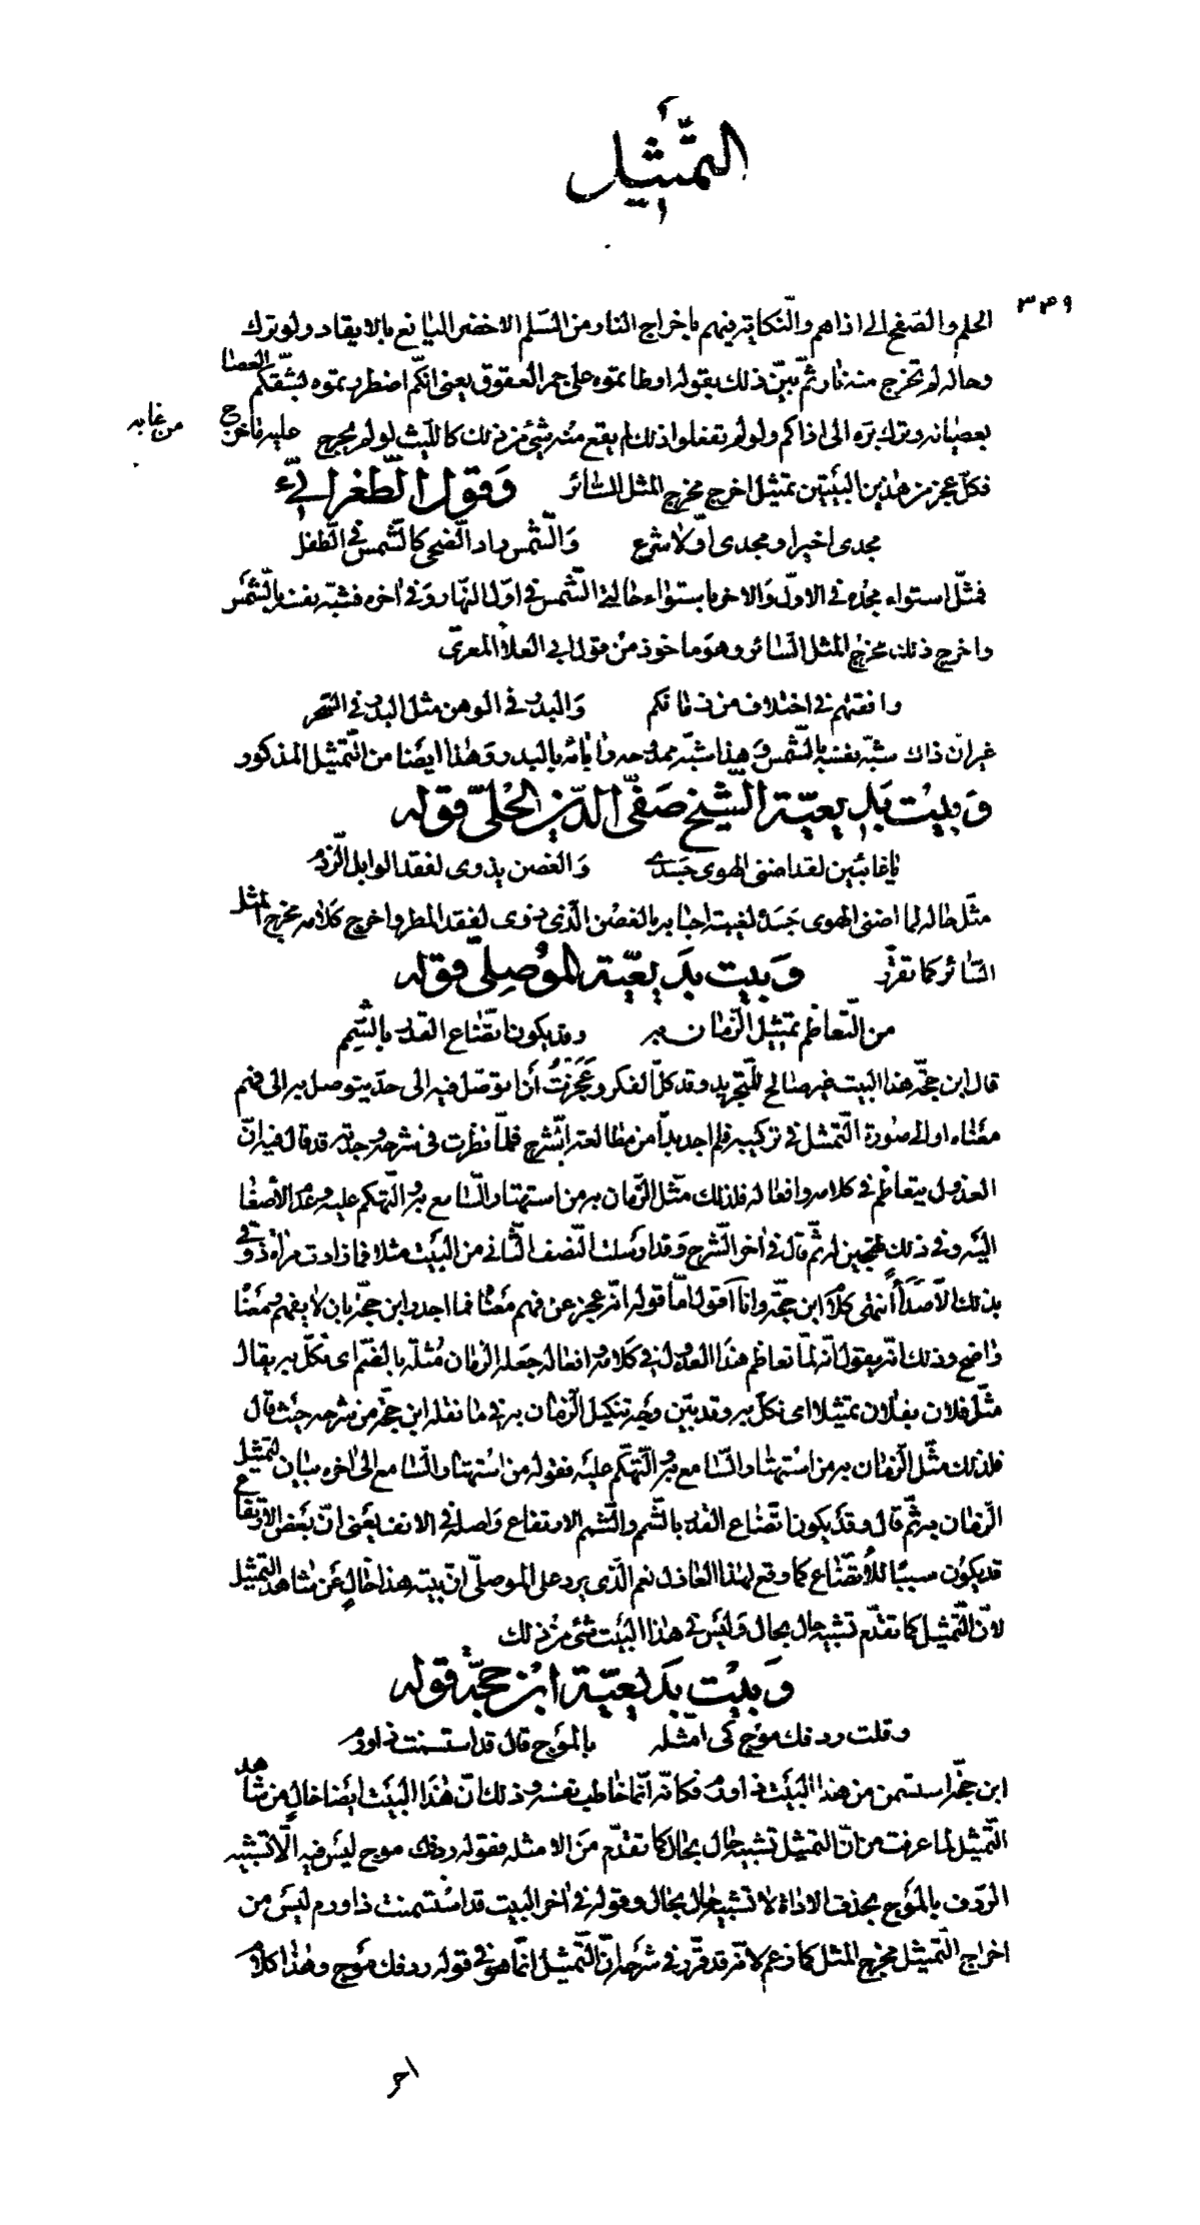 التمثيل
٣٤٩
الحلم والصفح الى اذاهم والنكاية فيهم باخراج النار من السلم الاخضر اليانع بالايقاد ولو ترك
وحاله لم تخرج منه نار ثم بيّن ذلك بقوله اوطاتموه على جمر العقوق يعنى انكم اضطررتموه لشقكم العصا
بعصيانه وترك بره الى اذاكم ولو لم تفعلوا ذلك لم يقع منه شئ من ذلك كالليث لو لم يحرج عليه ما خرج من غابه
فكل عجز من هذين البيتين تمثيل اخرج مخرج المثل السائر وقول الطغرائي
مجدى اخيرا ومجدى اولا شرع والشمس راد الضحى كالشمس فى الطفل
فمثل استواء مجده فى الاول والاخر باستواء حالة الشمس فى اول النهار وفى اخره فشبه نفسه بالشمس
واخرج ذلك مخرج المثل السائر وهو ماخوذ من قول ابى العلاء المعرى
وافقتهم فى اختلاف من زمانكم والبدر فى الوهن مثل البدر فى السحر
غير ان ذاك شبه نفسه بالشمس وهذا شبه ممدوحه واباه بالبدر وهذا ايضا من التمثيل المذكور
وبيت بديعية الشيخ صفى الدين الحلى قوله
يا غائبين لقد اضنى الهوى جسدى والغصن يذوى لفقد الوابل الرذم
مثل حاله لما اضنى الهوى جسده لغيبة احبابه بالغصن الذى ذوى لفقد المطر واخرج كلامه مخرج المثل
السائر كما تقرر وبيت بديعية الموصلى قوله
من التعاظم تمثيل الزمان به وقد يكون اتضاع القدر بالشمم
قال ابن حجة هذا البيت غير صالح للتجريد وقد كل الفكر وعجزت أن اتوصل فيه الى حد يتوصل به الى فهم
معناه او الى صورة التمثيل فى تركيبه فلم اجد بدا من مطالعة الشرح فلما نظرت فى شرحه وجدته قد قال فيه ان
العذول يتعاظم فى كلامه وافعاله فلذلك مثل الزمان به من استهتار السامع به والتهكم عليه وعدم الاصغا
اليه وفى ذلك تهجين له ثم قال فى اخر الشرح وقد ارسلت النصف الثانى من البيت مثلا فما زادت مراة ذوقى
بذلك الا صدأ انتهى كلام ابن حجة وانا اقول اما قوله انه عجز عن فهم معناه فما اجدر ابن حجة بان لا يفهمه ومعناه
واضح وذلك انه يقول انه لما تعاظم هذا العذول فى كلامه وافعاله جعله الزمان مُثلة بالضم اى نكل به يقال
مثل فلان بفلان تمثيلا اى نكل به وقد بين وجه تنكيل الزمان به فى ما نقله ابن حجة من شرحه حيث قال
فلذلك مثل الزمان به من استهتار السامع به والتهكم عليه فقوله من استهتار السامع الى اخره بيان لتمثيل
الزمان به ثم قال وقد يكون اتضاع القدر بالشمم والشمم الارتفاع واصله فى الانف يعنى ان بعض الارتفاع
قد يكون سببا للاتضاع كما وقع لهذا العاذل نعم الذى يرد على الموصلى ان بيته هذا خال عن شاهد التمثيل
لان التمثيل كما تقدم تشبيه حال بحال وليس فى هذا البيت شئ من ذلك
وبيت بديعية ابن حجة قوله
وقلت ردفك موج كى امثله بالموج قال قد استسمنت ذا ورم
ابن حجة استسمن من هذا البيت ذا ورم فكانه انما خاطب نفسه وذلك ان هذا البيت ايضا خال من شاهد
التمثيل لما عرفت من ان التمثيل تشبيه حال بحال كما تقدم من الامثلة فقوله ردفك موج ليس فيه الا تشبيه
الردف بالموج بحذف الاداة لا تشبيه حال بحال وقوله فى اخر البيت قد استسمنت ذا ورم ليس من
اخراج التمثيل مخرج المثل كما زعم لانه قد قرر فى شرحه ان التمثيل انما هو فى قوله ردفك موج وهذا كلام
اخر